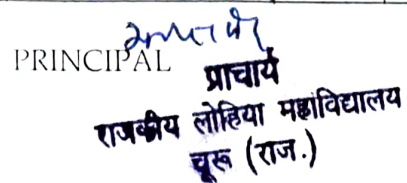 PRINCIPAL
प्राचार्य
राजकीय लोहिया महाविद्यालय
चूरू (राज.)